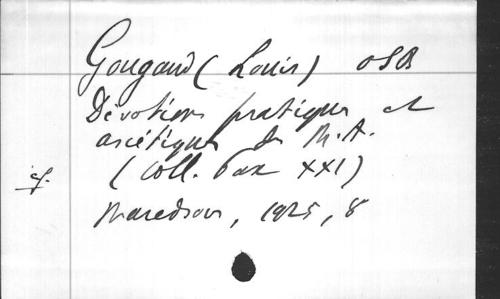 Gougaud (Louis) OSB
Dévotions pratiques et
ascétiques du M. A.
(Coll. Pax XXI)
cf.
Maredsous, 1925, 8